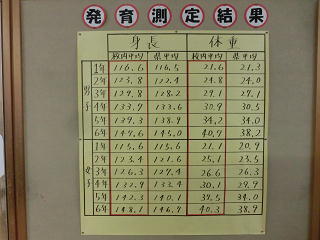 発育測定結果
身長 体重
校内平均 県平均 校内平均 県平均
男子
1年 116.6 116.5 21.6 21.3
2年 123.8 122.4 24.8 24.0
3年 129.8 128.2 29.1 27.1
4年 133.7 133.6 30.9 30.5
5年 139.3 138.9 34.2 34.0
6年 147.6 145.0 40.7 38.2
女子
1年 115.6 115.6 21.1 20.9
2年 123.4 121.6 25.1 23.5
3年 126.3 127.4 26.6 26.3
4年 132.9 133.4 30.1 29.9
5年 142.3 140.1 37.5 34.0
6年 148.1 146.7 40.3 38.9